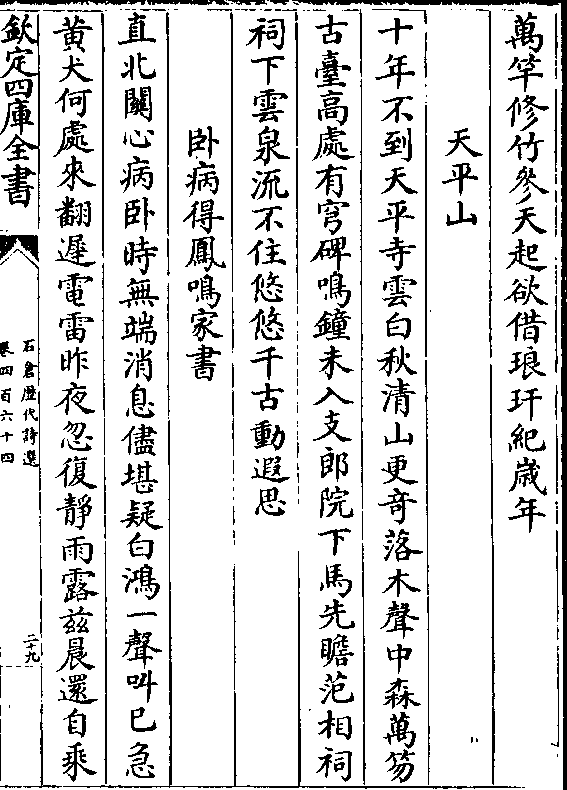 萬竿修竹參天起欲借琅玕紀歲年
天平山
十年不到天平寺雲白秋清山更竒落木聲中森萬笏
古臺高處有穹碑鳴鐘未入支郎院下馬先瞻范相祠
祠下雲泉流不住悠悠千古動遐思
卧病得鳳鳴家書
直北關心病卧時無端消息儘堪疑白鴻一聲叫已急
黃犬何處來翻遲電雷昨夜忽復靜雨露兹晨還自乘
欽定四庫全書
石倉歷代詩選
卷四百六十四
二十九